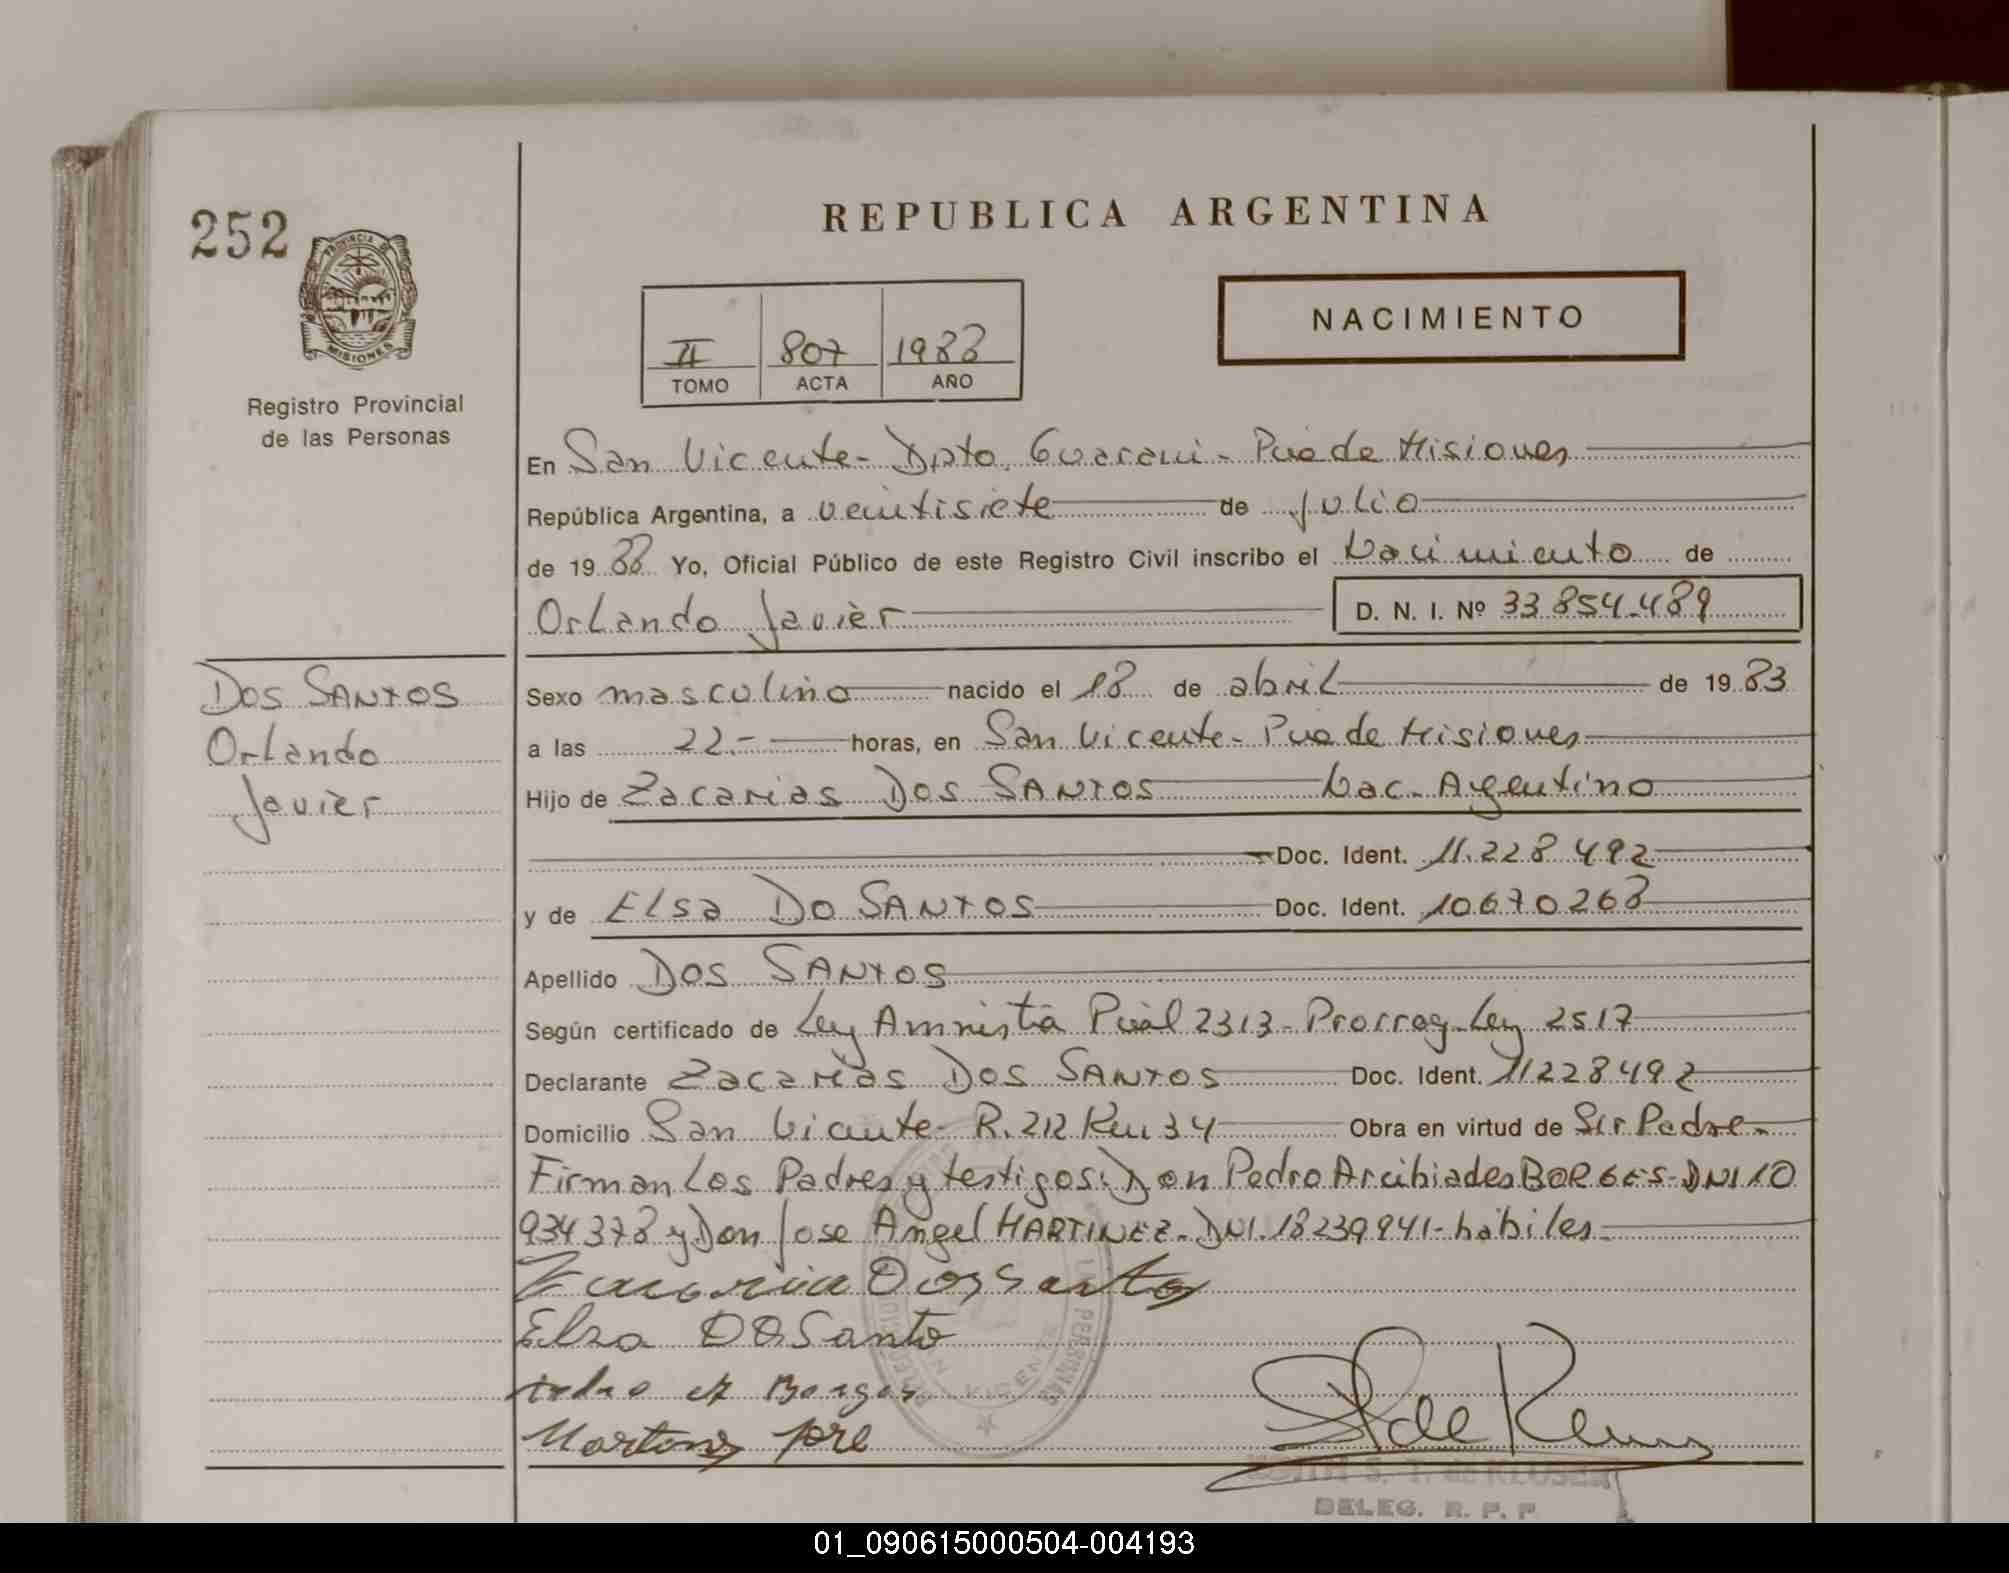 252
REPUBLICA ARGENTINA
PROVINCIA DE
MISIONES
Registro Provincial
de las Personas
II 807 1988
TOMO ACTA AÑO
NACIMIENTO
En San Vicente - Dpto. Guaraní - Pcia de Misiones
República Argentina, a veintisiete de julio
de 19 88 Yo, Oficial Público de este Registro Civil inscribo el Nacimiento de
Orlando Javier D. N. I. Nº 33.854.489
DOS SANTOS
Orlando
Javier
Sexo masculino nacido el 18 de abril de 19 83
a las 22.- horas, en San Vicente - Pcia de Misiones
Hijo de Zacarias DOS SANTOS Nac. Argentino
Doc. Ident. 11.228.492
y de Elsa DO SANTOS Doc. Ident. 10670268
Apellido DOS SANTOS
Según certificado de Ley Amnistia Pcial 2313 - Prorrog. Ley 2517
Declarante Zacarias DOS SANTOS Doc. Ident. 11228492
Domicilio San Vicente - R. 212 Km 34 Obra en virtud de Ser Padre -
Firman Los Padres y testigos: Don Pedro Arcibiades BORGES - DNI 10
934378 y Don Jose Angel MARTINEZ - DNI. 18239941 - habiles -
Zacaria Dos Santos
Elsa DO Santo
Borges
Martinez Jose
S. T. de KLUSER
DELEG. R. P. P
01_090615000504-004193